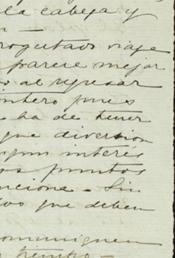 la cabeza y
n
royectado viaje
parece mejor
o al regresar
intero pues
ha de tener
que diversion
algun interés
os puntos
nciona - Sin
vo que deben
comuniquen
tiempo -